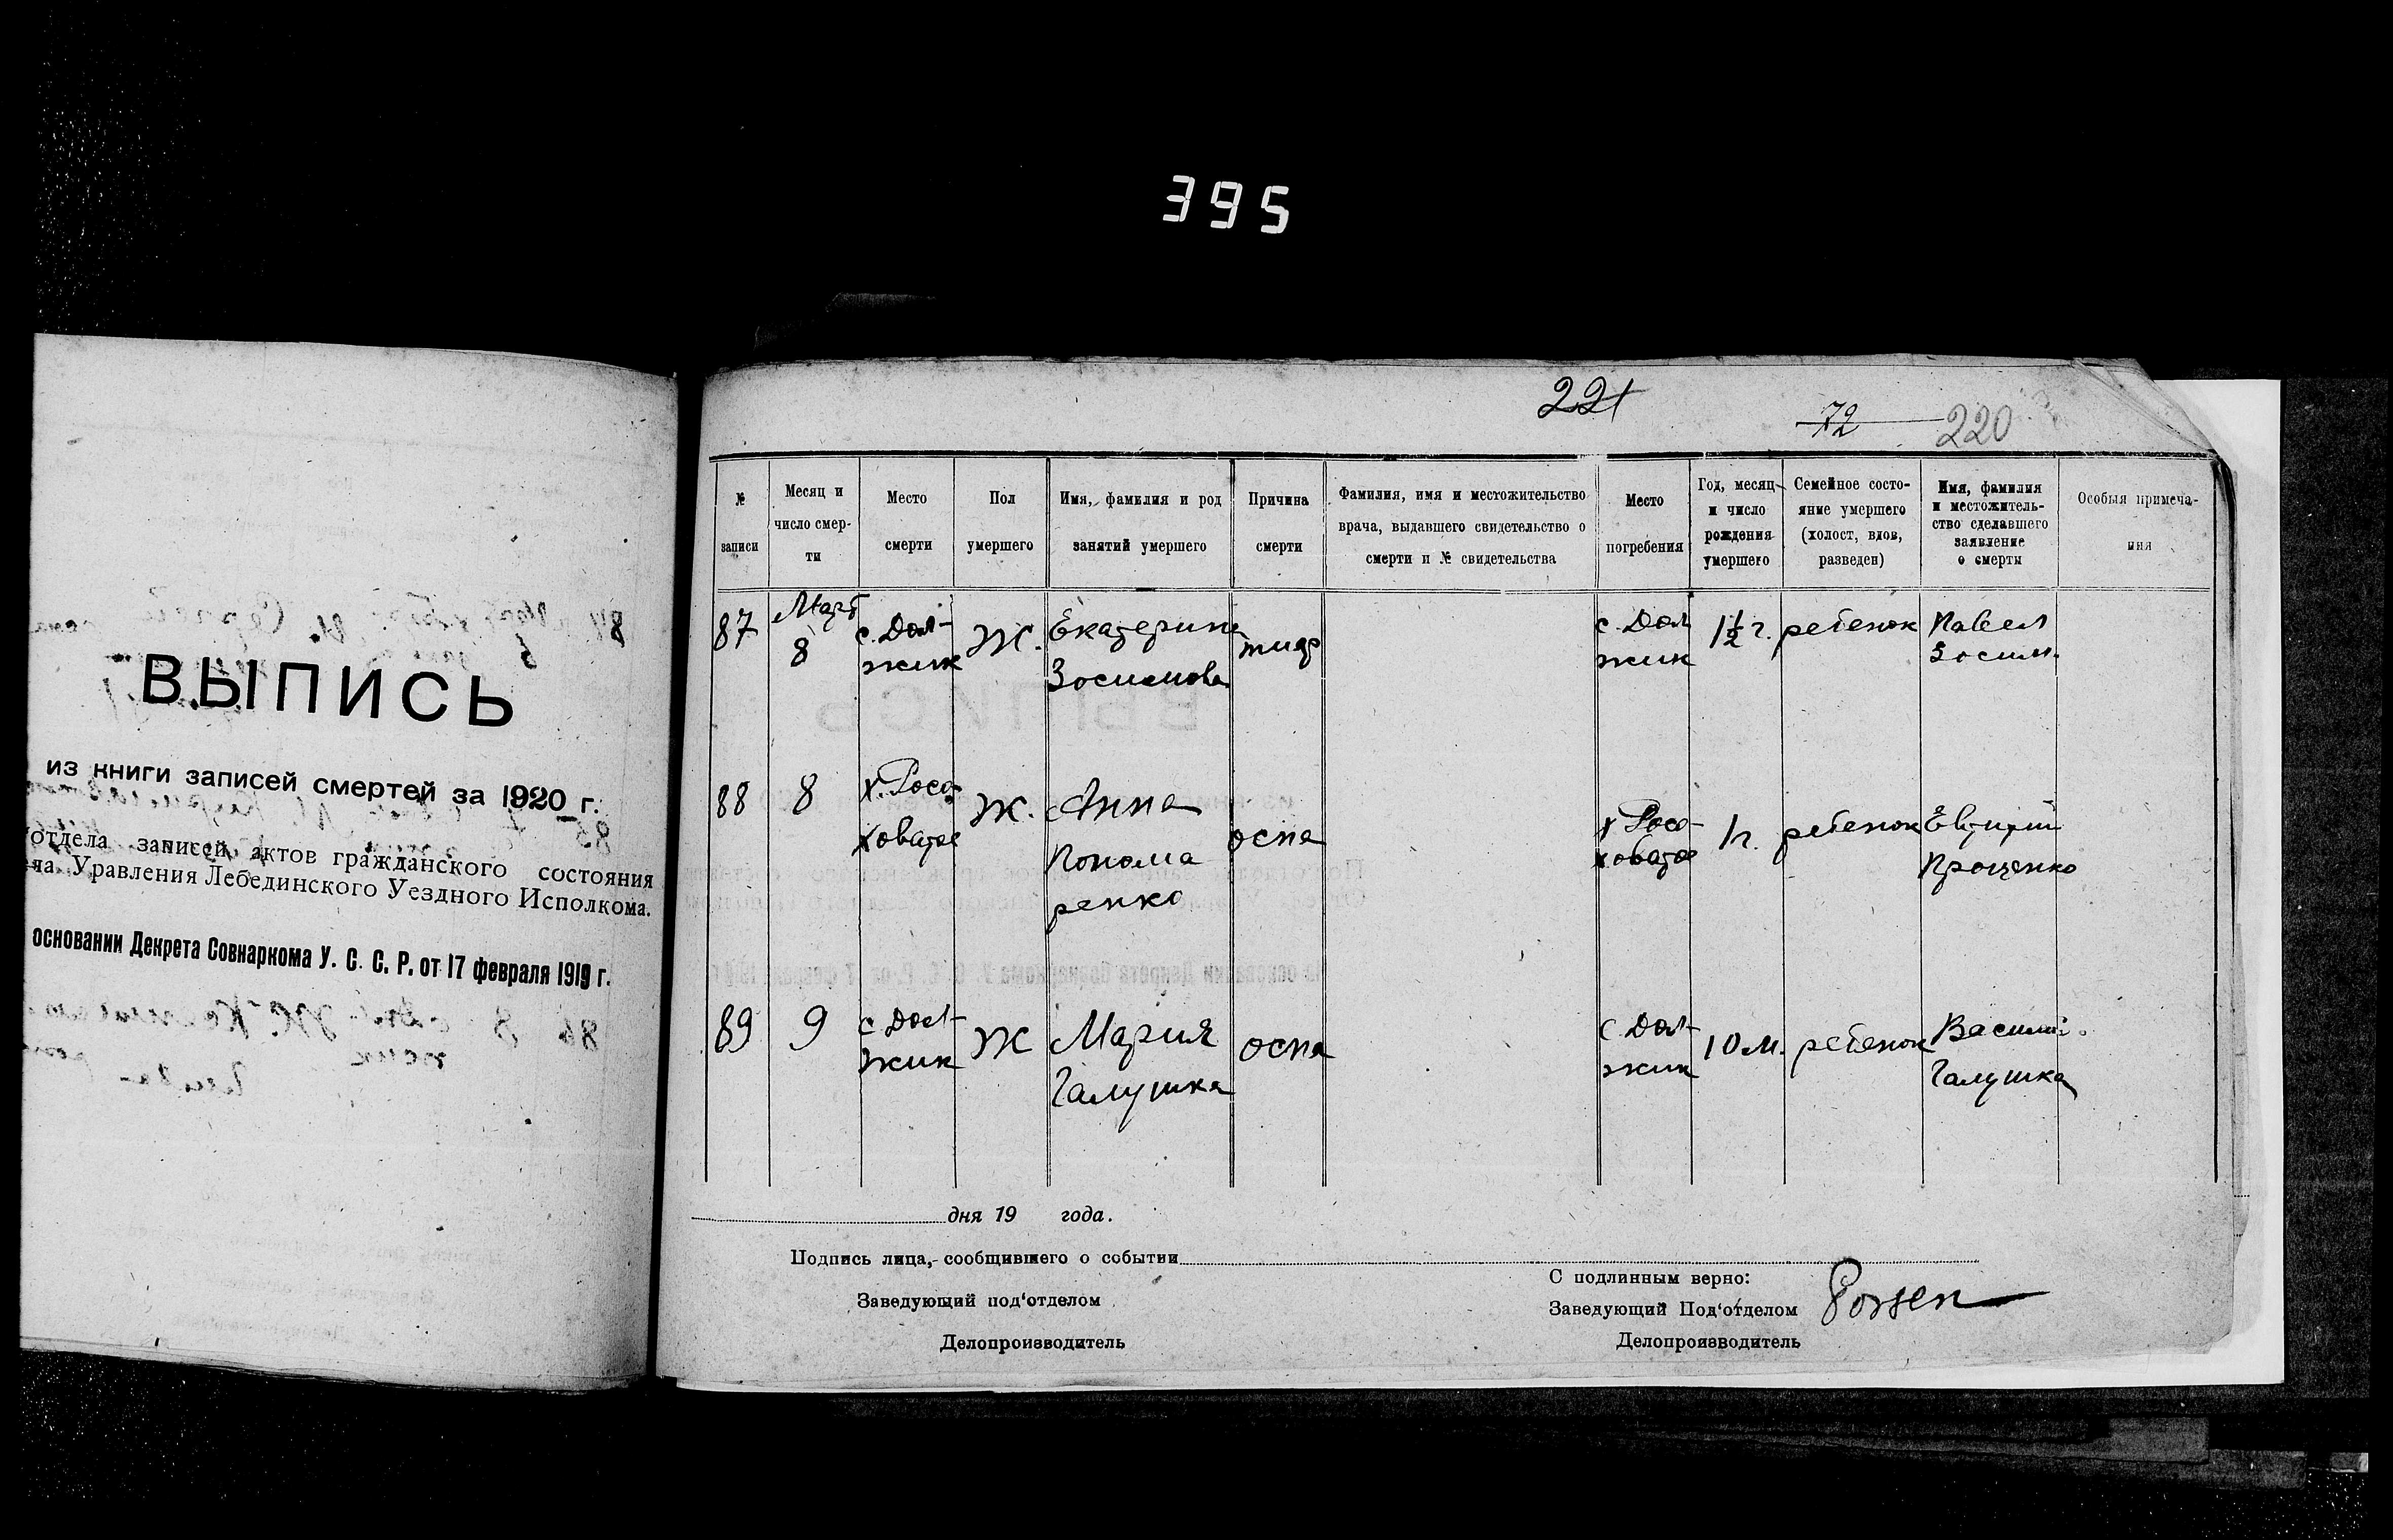 395
ВЫПИСЬ
из книги записей смертей за 1920 г.
отдела записей актов гражданского состояния
Управления Лебединского Уездного Исполкома.
основании Декрета Совнаркома У. С. С. Р. от 17 февраля 1919 г.
221
72 220
№ записи
Месяц и число смер-ти
Место смерти
Пол умершего
Имя, фамилия и род занятий умершего
Причина смерти
Фамилия, имя и местожительство врача, выдавшего свидетельство о смерти и № свидетельства
Место погребения
Год, месяц и число рождения умершего
Семейное состо-яние умершего (холост, вдов, разведен)
Имя, фамилия и местожитель-ство сделавшего заявление о смерти
Особыя примеча-ния
87 Март 8 с. Дол-жик Ж. Екатерина Зосимова тиф с. Дол жик 1½ г. ребенок Павел Зосим.
88 8 х. Росо-ховатое Ж. Анна Понома ренко оспа х Росо-ховатое 1 г. ребенок Проценко
89 9 с Дол-жик Ж Мария Галушка оспа с Дол-жик 10 м. ребенок Василий Галушка
дня 19 года.
Подпись лица, сообщившего о событии
Заведующий под'отделом
Делопроизводитель
С подлинным верно:
Заведующий Под'отделом
Делопроизводитель